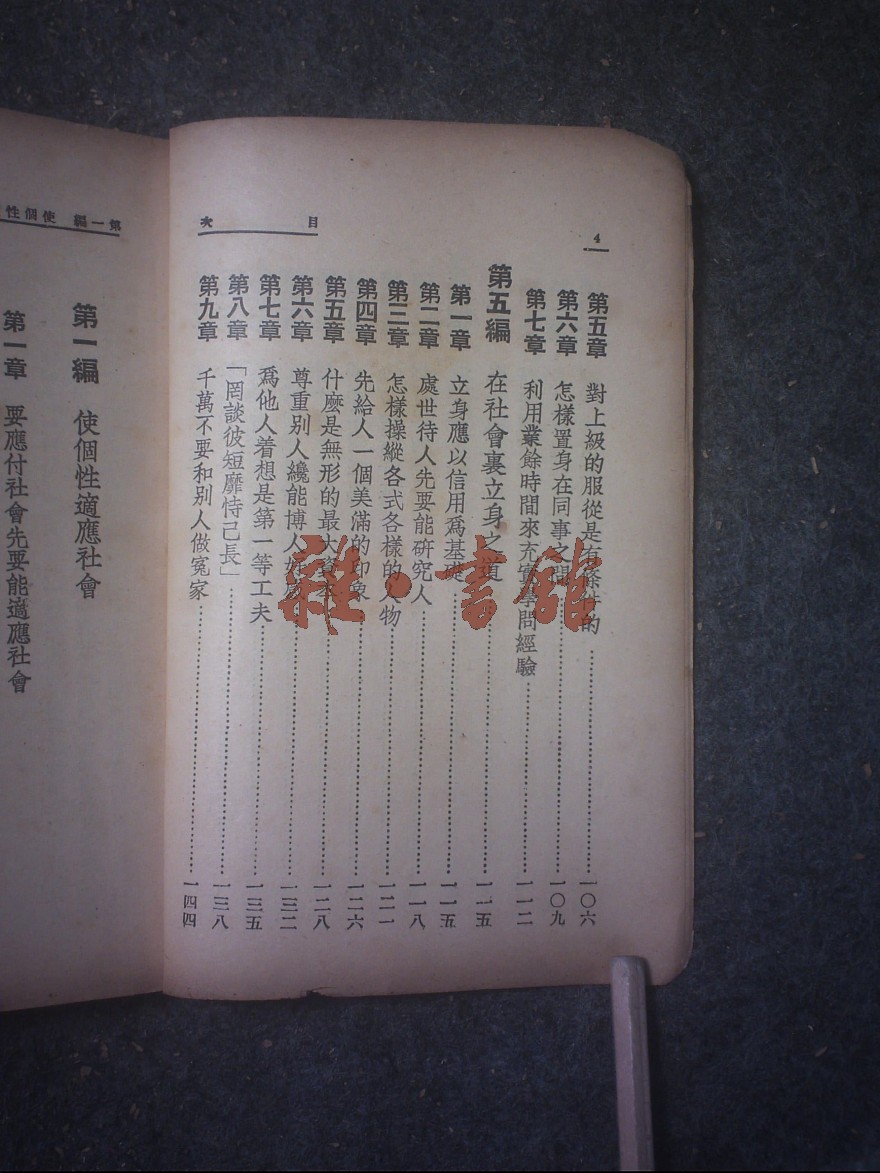 4
目次
第五章 對上級的服從是有條件的 一〇六
第六章 怎樣置身在同事之間 一〇九
第七章 利用業餘時間來充實學問經驗 一一二
第五編 在社會裏立身之道 一一五
第一章 立身應以信用爲基礎 一一五
第二章 處世待人先要能研究人 一一八
第三章 怎樣操縱各式各樣的人物 一二一
第四章 先給人一個美滿的印象 一二六
第五章 什麽是無形的最大資 一二八
第六章 尊重別人纔能博人好感 一三二
第七章 爲他人着想是第一等工夫 一三五
第八章 「罔談彼短靡恃己長」 一三八
第九章 千萬不要和別人做冤家 一四四
第一編 使個性
第一編 使個性適應社會
第一章 要應付社會先要能適應社會
雜·書館